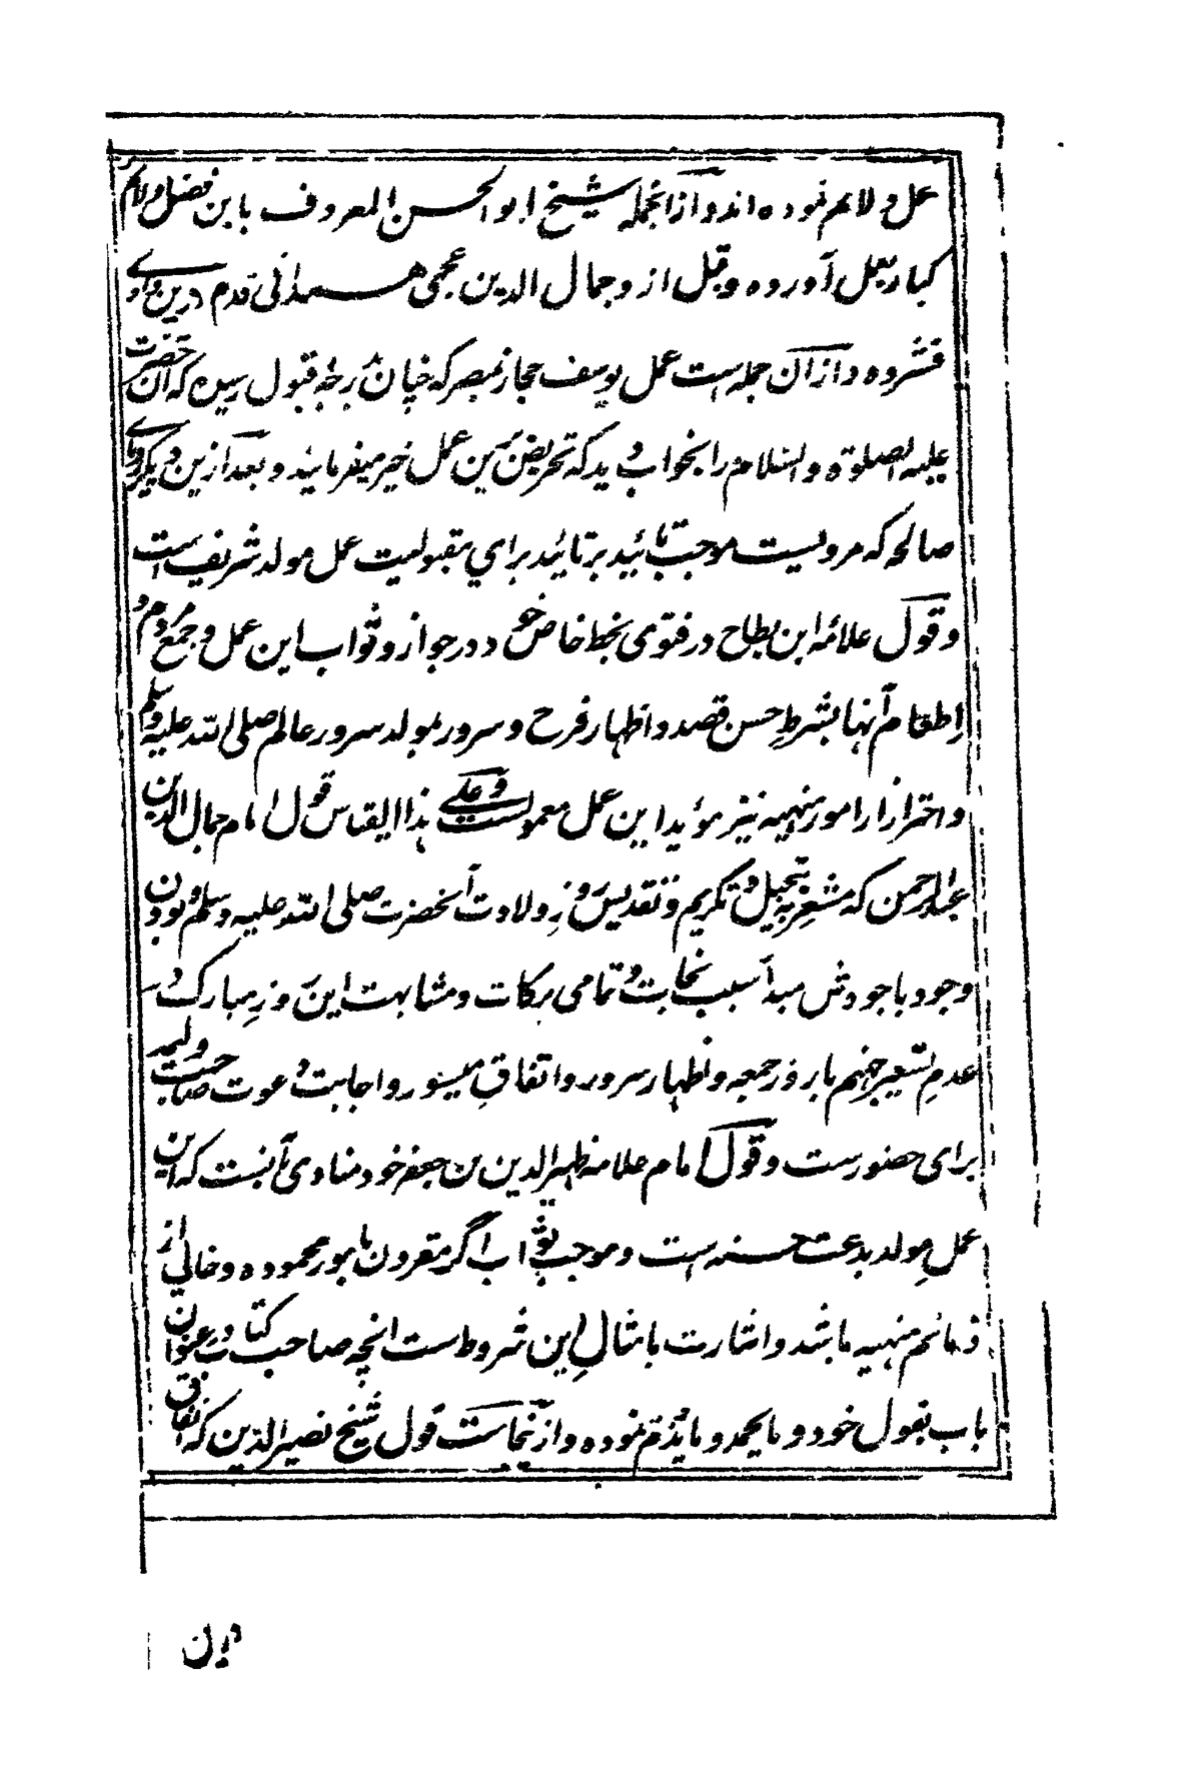 عمل ولائم نموده اند و ازانجمله شیخ ابو الحسن المعروف بابن فضل ولائم
کبار بعمل آورده و قبل ازو جمال الدین عجمی همدانی قدم درین وادی
فشرده و ازان جمله است عمل یوسف حجاز بمصر که چنان بدرجهٔ قبول رسیده که آن حضرت
علیه الصلوة والسلام را بخواب دید که تحریض برین عمل خیر میفرمایند و بعد ازین دیگر رویای
صالحه که مرویست موجب تائید بر تائید برای مقبولیت عمل مولد شریف است
و قول علامه ابن بطاح در فتوی بخط خاص خود در جواز و ثواب این عمل و جمع مردم و
اطعام آنها بشرطِ حسن قصد و اظهار فرح و سرور بمولد سرور عالم صلی الله علیه وسلم
و احتراز از امور منهیه نیز مؤید این عمل معمولست و علی هذا القیاس قول امام جمال الدین
عبد الرحمن که مشعر به تبجیل و تکریم و تقدیس روز ولادت آنحضرت صلی الله علیه وسلم و بودن
وجود باجودش مبدأ سبب نجات و تمامی برکات و مشابهت این روزِ مبارک در
عدمِ تسعیر جهنم با روز جمعه و اظهار سرور و اتفاقِ میسور و اجابت دعوت صاحب ولیمه
برای حضورست و قول امام علامه ظهیر الدین بن جعفر خود منادی بآنست که این
عملِ مولد بدعت حسنه است و موجب ثواب اگر مقرون بامور محموده و خالی از
ذمائم منهیه باشد و اشارت بامثالِ این شروط است انچه صاحب کتاب در عنوان
باب بقول خود و ما یحمد و ما یذم نموده و ازآنجاست قول شیخ نصیر الدین که انفاق